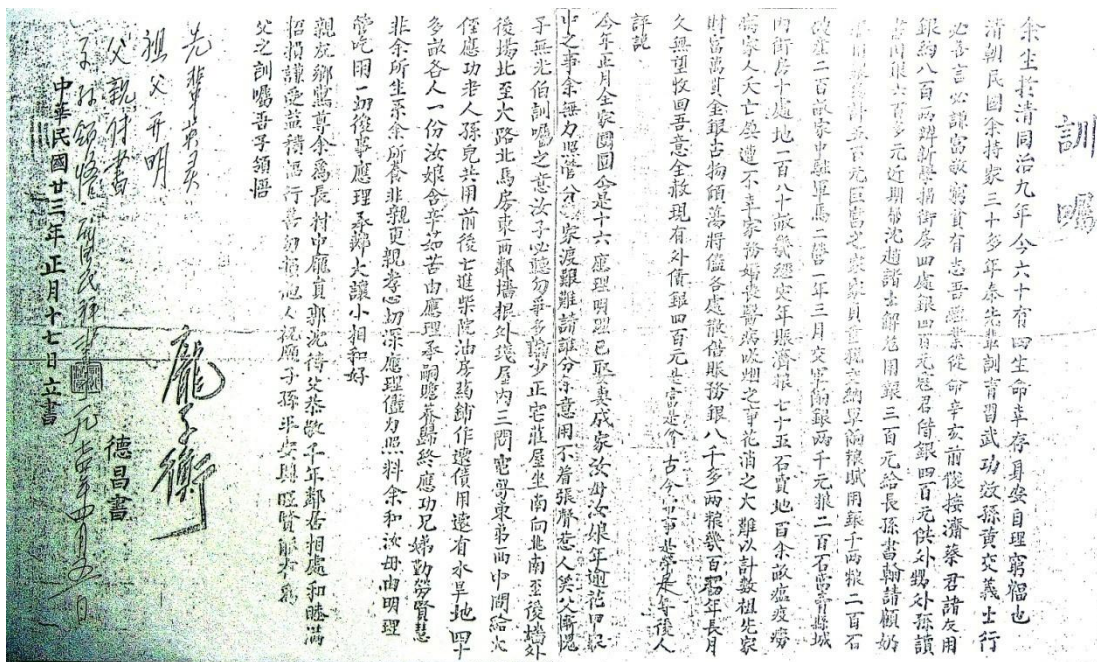 訓囑
余生於清同治九年今六十有四生命幸存身安自理窮溜也
清朝民國余持家三十多年泰先輩訓育習武功效孫黃交義士行
必善言必謙富敬窮貧有志吾學業從命辛亥前後接濟蔡君諸友用
銀約八百兩辦新學捐街房四處銀四百元冠君借銀四百元供外甥外孫讀
書用銀六百多元近期郝沈趙諸士解危用銀三百元給長孫書翰請願奶
五百元巨富之家家貝重税交納軍餉糧賦用銀千兩糧二百石
破產二百畝家中駐軍馬二營一年三月交軍餉銀兩千元糧二百石當賣縣城
內街房十處地二百八十畝幾經灾年賬濟糧七十五石賣地百余畝瘟疫癆
傷家人夭亡屢遭不幸家務婚喪醫病吸烟之事花消之大難以計數祖先家
財富萬貫金銀古物傾蕩將儘各處散借賬務銀八千多兩糧幾百年長月
久無望收回吾意全赦現有外債銀四百元是古今是後人
評説
今年正月全家團圓余是十六應理明理已娶妻成家汝母汝娘年逾花甲
中之事余無力照管分家渡艱難請誰分余意用不着張聲惹人笑父慚愧
子無光伯訓囑之意汝子必聽勿爭多論少正宅莊屋坐南向北南至後墻外
後場北至大路北馬房東西鄰墻根外後屋內三間哥東弟西中間給火
侄應功乖人孫兒共用前後七進柴院油房药鋪作還債用還有水旱地四十
多畝各人一份汝娘含辛茹苦由應理承嗣贍養歸終應功兄娣勤勞賢慧
非余所生系余所養非親更親孝心切深應理儘力照料余和汝母由明理
管吃用一切後事應理承辦大讓小相和好
親友鄉黨尊余為長村中龐貢郭沈待父恭敬千年鄰居相處和睦滿
招損謙受益積德行善勿損他人祝願子孫平安興旺賢能才為
父之訓囑吾子領悟
龐子衡
德昌書
先輩英灵
祖父开明
父親付書
子孙領悟
中華民國廿三年正月十七日立書